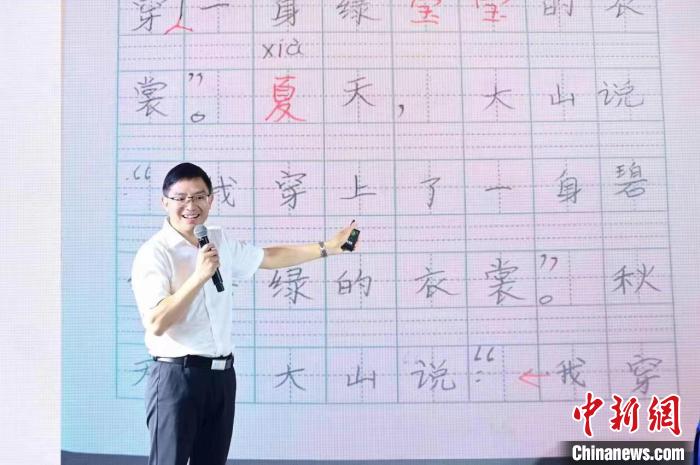 穿一身绿的衣
xià
裳”。夏天，大山说
“我穿上了一身碧
绿的衣裳”。秋
天大山说：“我穿
中新网
Chinanews.com